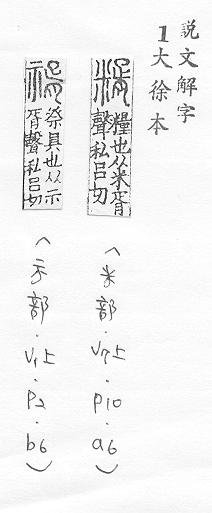 説文解字
1大徐本
糈
糧也从米胥
聲私呂切
(米部・V7上・p10・a6)
祭具也从示
胥聲私呂切
(示部・V1上・p2・b6)